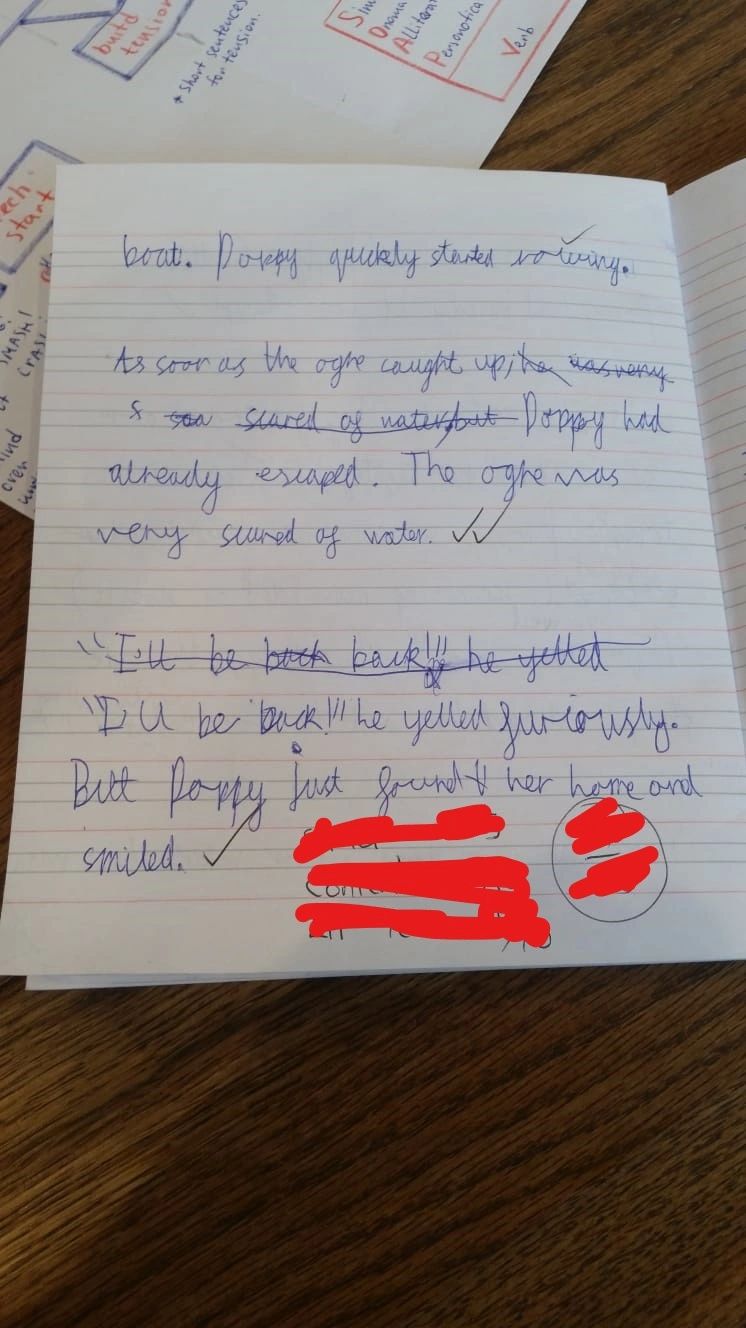 build
tension
* Short sentences
for tension.
S
O
Alliterat
P
Verb
ech.
start
SMASH!
CRASH
boat. Poppy quickly started rowing.
As soon as the ogre caught up, he was very
scared of water, but Poppy had
already escaped. The ogre was
very scared of water.
"I'll be back back!!! he yelled
"I'll be back!!! he yelled furiously.
But Poppy just found her home and
smiled.